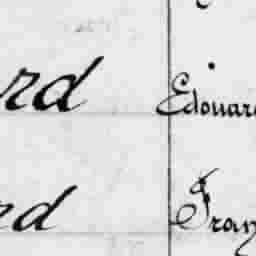 rd Edouard
rd Franç